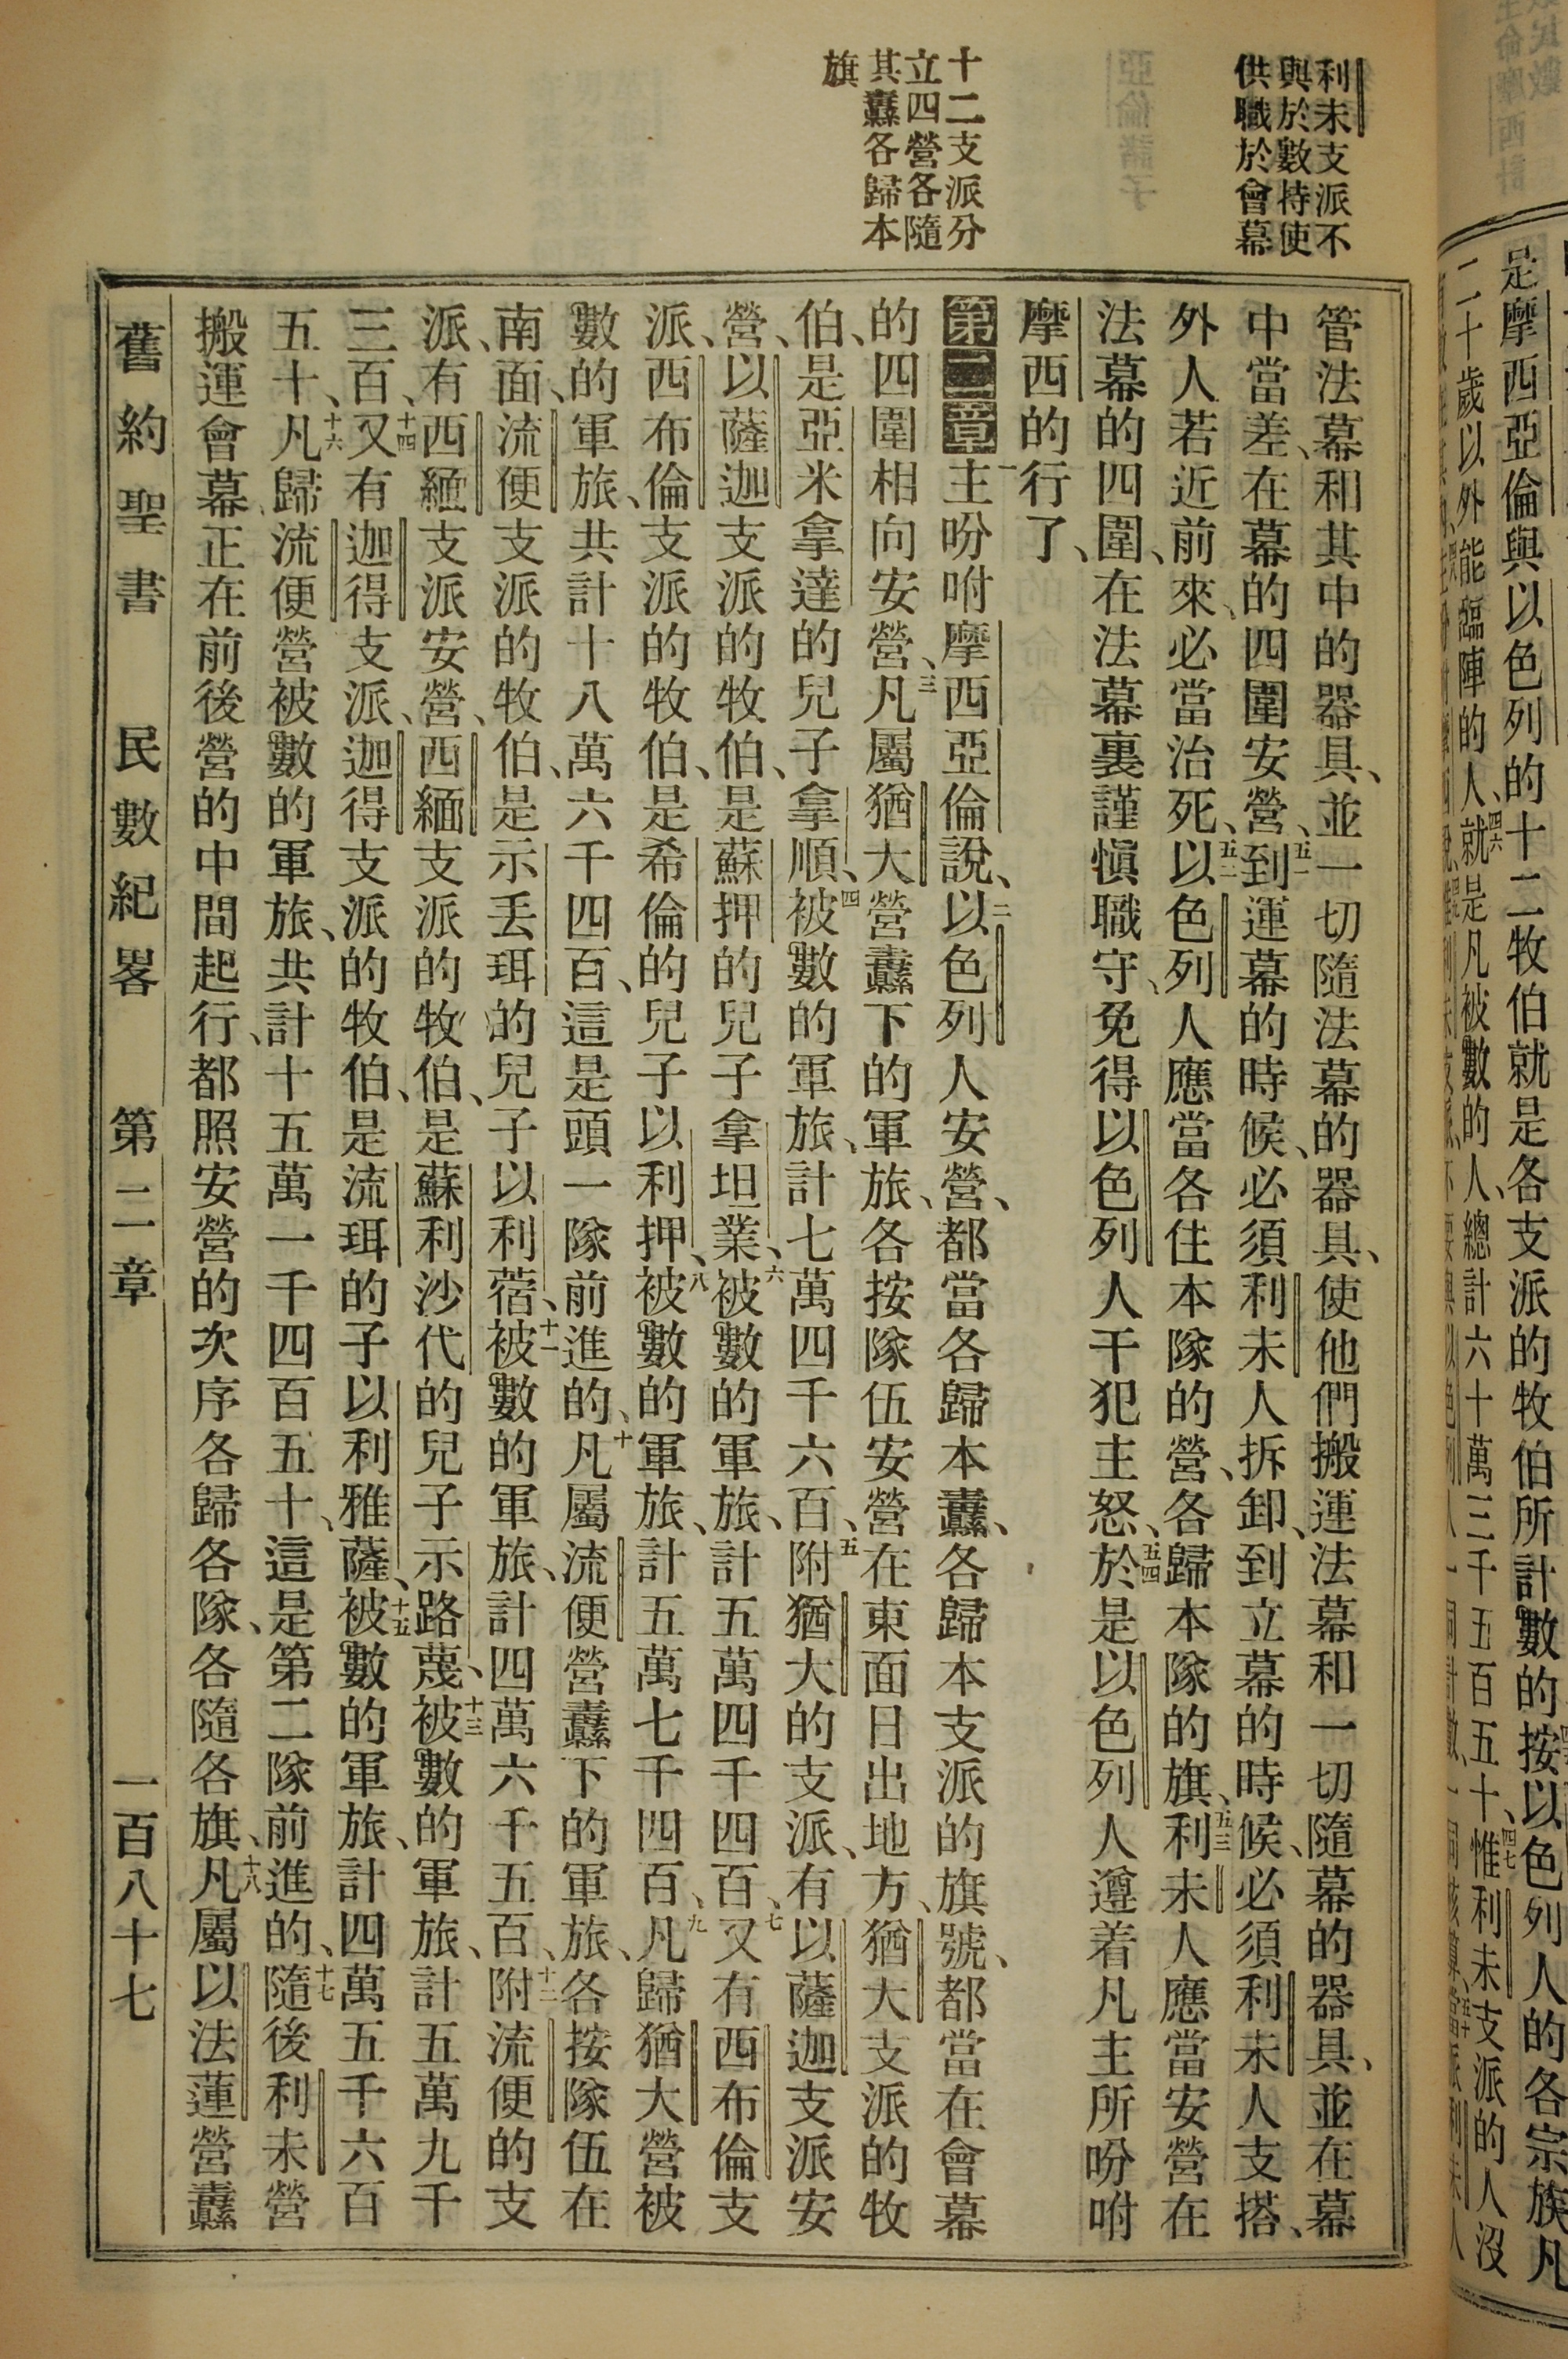 利未支派不
與於數持使
供職於會幕
十二支派分
立四營各隨
其纛各歸本
旗
是摩西亞倫與以色列的十二牧伯就是各支派的牧伯所計數的按以色列人的各宗族凡
二十歲以外能臨陣的人、四六就是凡被數的人、總計六十萬三千五百五十、四七惟利未支派的人沒
管法幕和其中的器具、並一切隨法幕的器具、使他們搬運法幕和一切隨幕的器具、並在幕
中當差、在幕的四圍安營、五一到運幕的時候、必須利未人拆卸、到立幕的時候、必須利未人支搭、
外人若近前來、必當治死、五二以色列人應當各住本隊的營、各歸本隊的旗、五三利未人應當安營在
法幕的四圍、在法幕裏謹愼職守、免得以色列人干犯主怒、五四於是以色列人遵着凡主所吩咐
摩西的行了、
第二章一主吩咐摩西亞倫說、二以色列人安營、都當各歸本纛、各歸本支派的旗號、都當在會幕
的四圍相向安營、三凡屬猶大營纛下的軍旅、各按隊伍安營在東面日出地方、猶大支派的牧
伯、是亞米拿達的兒子拿順、四被數的軍旅、計七萬四千六百、五附猶大的支派、有以薩迦支派安
營、以薩迦支派的牧伯、是蘇押的兒子拿坦業、六被數的軍旅、計五萬四千四百、七又有西布倫支
派、西布倫支派的牧伯、是希倫的兒子以利押、八被數的軍旅、計五萬七千四百、九凡歸猶大營被
數的軍旅、共計十八萬六千四百、這是頭一隊前進的、十凡屬流便營纛下的軍旅、各按隊伍在
南面、流便支派的牧伯、是示丟珥的兒子以利蓿、十一被數的軍旅、計四萬六千五百、十二附流便的支
派、有西緬支派安營、西緬支派的牧伯、是蘇利沙代的兒子示路蔑、十三被數的軍旅、計五萬九千
三百、十四又有迦得支派、迦得支派的牧伯、是流珥的子以利雅薩、十五被數的軍旅、計四萬五千六百
五十、十六凡歸流便營被數的軍旅、共計十五萬一千四百五十、這是第二隊前進的、十七隨後利未營
搬運會幕、正在前後營的中間起行、都照安營的次序各歸各隊、各隨各旗、十八凡屬以法蓮營纛
舊約聖書 民數紀畧 第二章 一百八十七